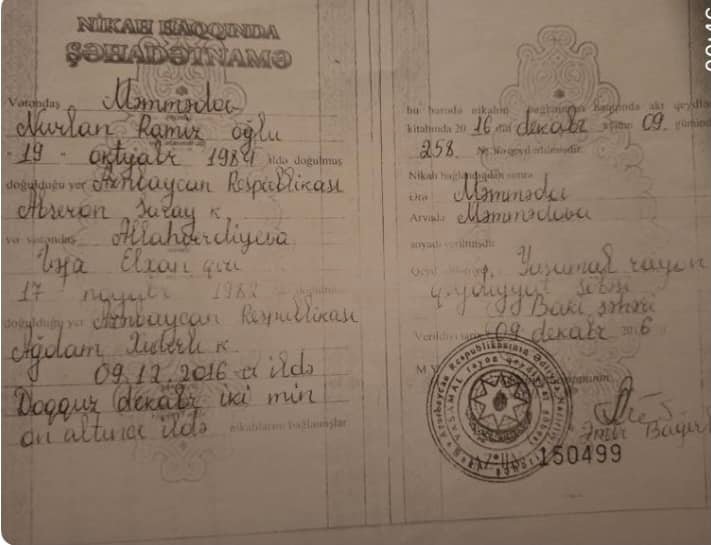 NİKAH HAQQINDA
ŞƏHADƏTNAMƏ
Vətəndaş Məmmədov
Nurlan Ramiz oğlu
19 oktyabr 1984 ildə doğulmuş
doğulduğu yer Azərbaycan Respublikası
Abşeron Saray k
və vətəndaş Allahverdiyeva
Elxan qızı
17 noyabr 1982
doğulduğu yer Azərbaycan Respublikası
Ağdam k
09.12 2016 cı ildə
Doqquz dekabr iki min
on altıncı ildə nikahlarını bağlamışlar
bu barədə nikahın bağlanması haqqında akt qeydlə
kitabında 20 16 dekabr ayının 09 günündə
258 № lə qeyd edilmişdir.
Nikah bağlandıqdan sonra
ərə Məmmədov
Arvada Məmmədova
soyadı verilmişdir
Yasamal rayon
qeydiyyat şöbəsi
Bakı şəhəri
Verildiyi 09 dekabr 2016
M Y
Azərbaycan Respublikasının Ədliyyə Nazirliyi
YASAMAL rayon qeydiyyat şöbəsi
150499